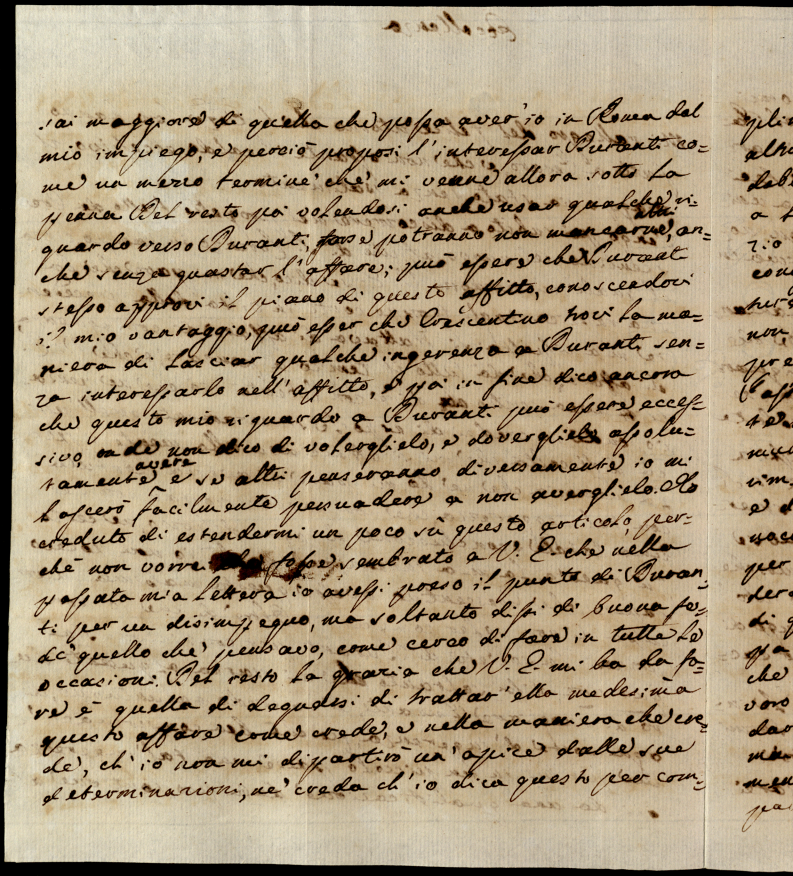 sai maggiore di quella che possa aver' io in Roma dal
mio impiego, e perciò proposi l'interessar Buranti co=
me un mezzo termine che mi venne allora sotto la
penna. Del resto poi volendosi anche usar qualche ri=
guardo verso Buranti, forse potranno non mancarne altri, an=
che senza guastar l'affare; può essere che Burant
stesso approvi il piano di questo affitto, conoscendovi
il mio vantaggio, può esser che Crescentino trovi la ma=
niera di lasciar qualche ingerenza a Buranti sen=
za interessarlo nell'affitto, e poi in fine dico ancora
che questo mio riguardo a Buranti può essere ecces=
sivo, onde non dico di volerglielo, e doverglielo assolu=
tamente avere, e se altri penseranno diversamente io mi
lascerò facilmente persuadere a non averglielo. Ho
creduto di estendermi un poco sù questo articolo, per=
chè non vorrei che fosse sembrato a V. E. che nella
passata mia lettera io avessi preso il punto di Buran=
ti per un disimpegno, ma soltanto dissi di buona fe=
de quello che pensavo, come cerco di fare in tutte le
occasioni. Del resto la grazia che V. E. mi ha da fa=
re è quella di degnarsi di trattar' ella medesima
questo affare come crede, e nella maniera che cre=
de, ch' io non mi dipartirò un' apice dalle sue
determinazioni, nè creda ch' io dica questo per com=